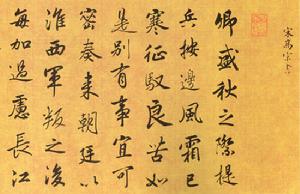 宋高宗書
卿盛秋之際提
兵按邊風霜已
寒征馭良苦如
是別有事宜可
密奏來朝廷以
淮西軍叛之後
每加過慮長江